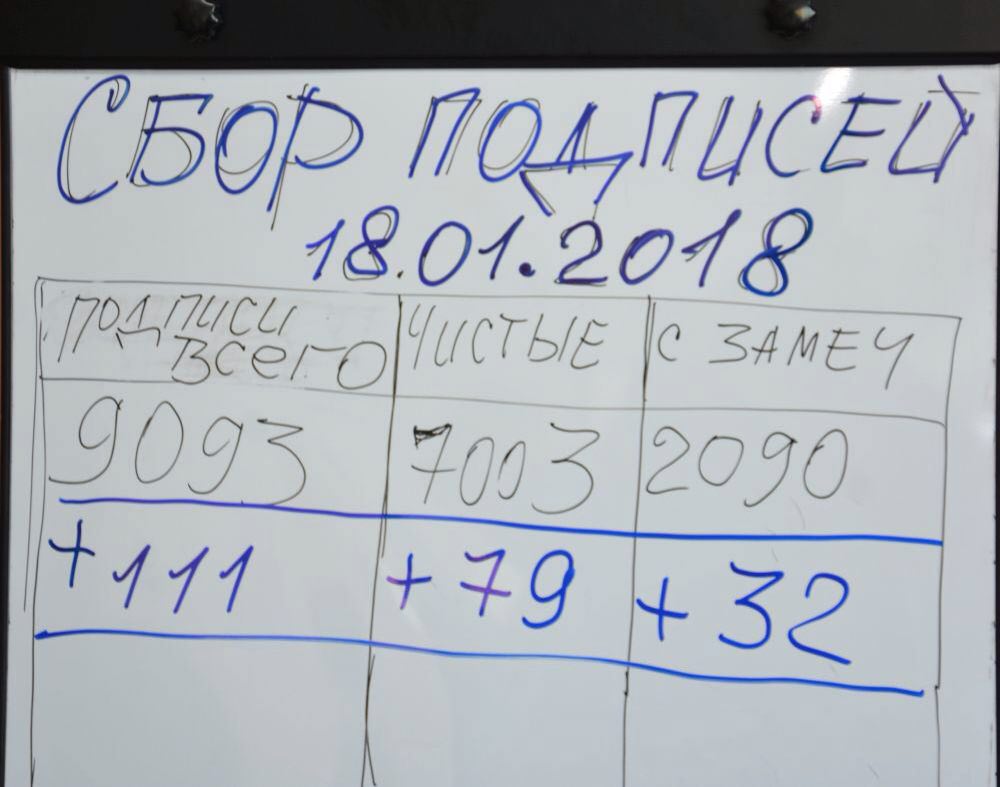 СБОР ПОДПИСЕЙ
18.01.2018
ПОДПИСИ ВСЕГО ЧИСТЫЕ С ЗАМЕЧ
9093 7003 2090
+111 +79 +32